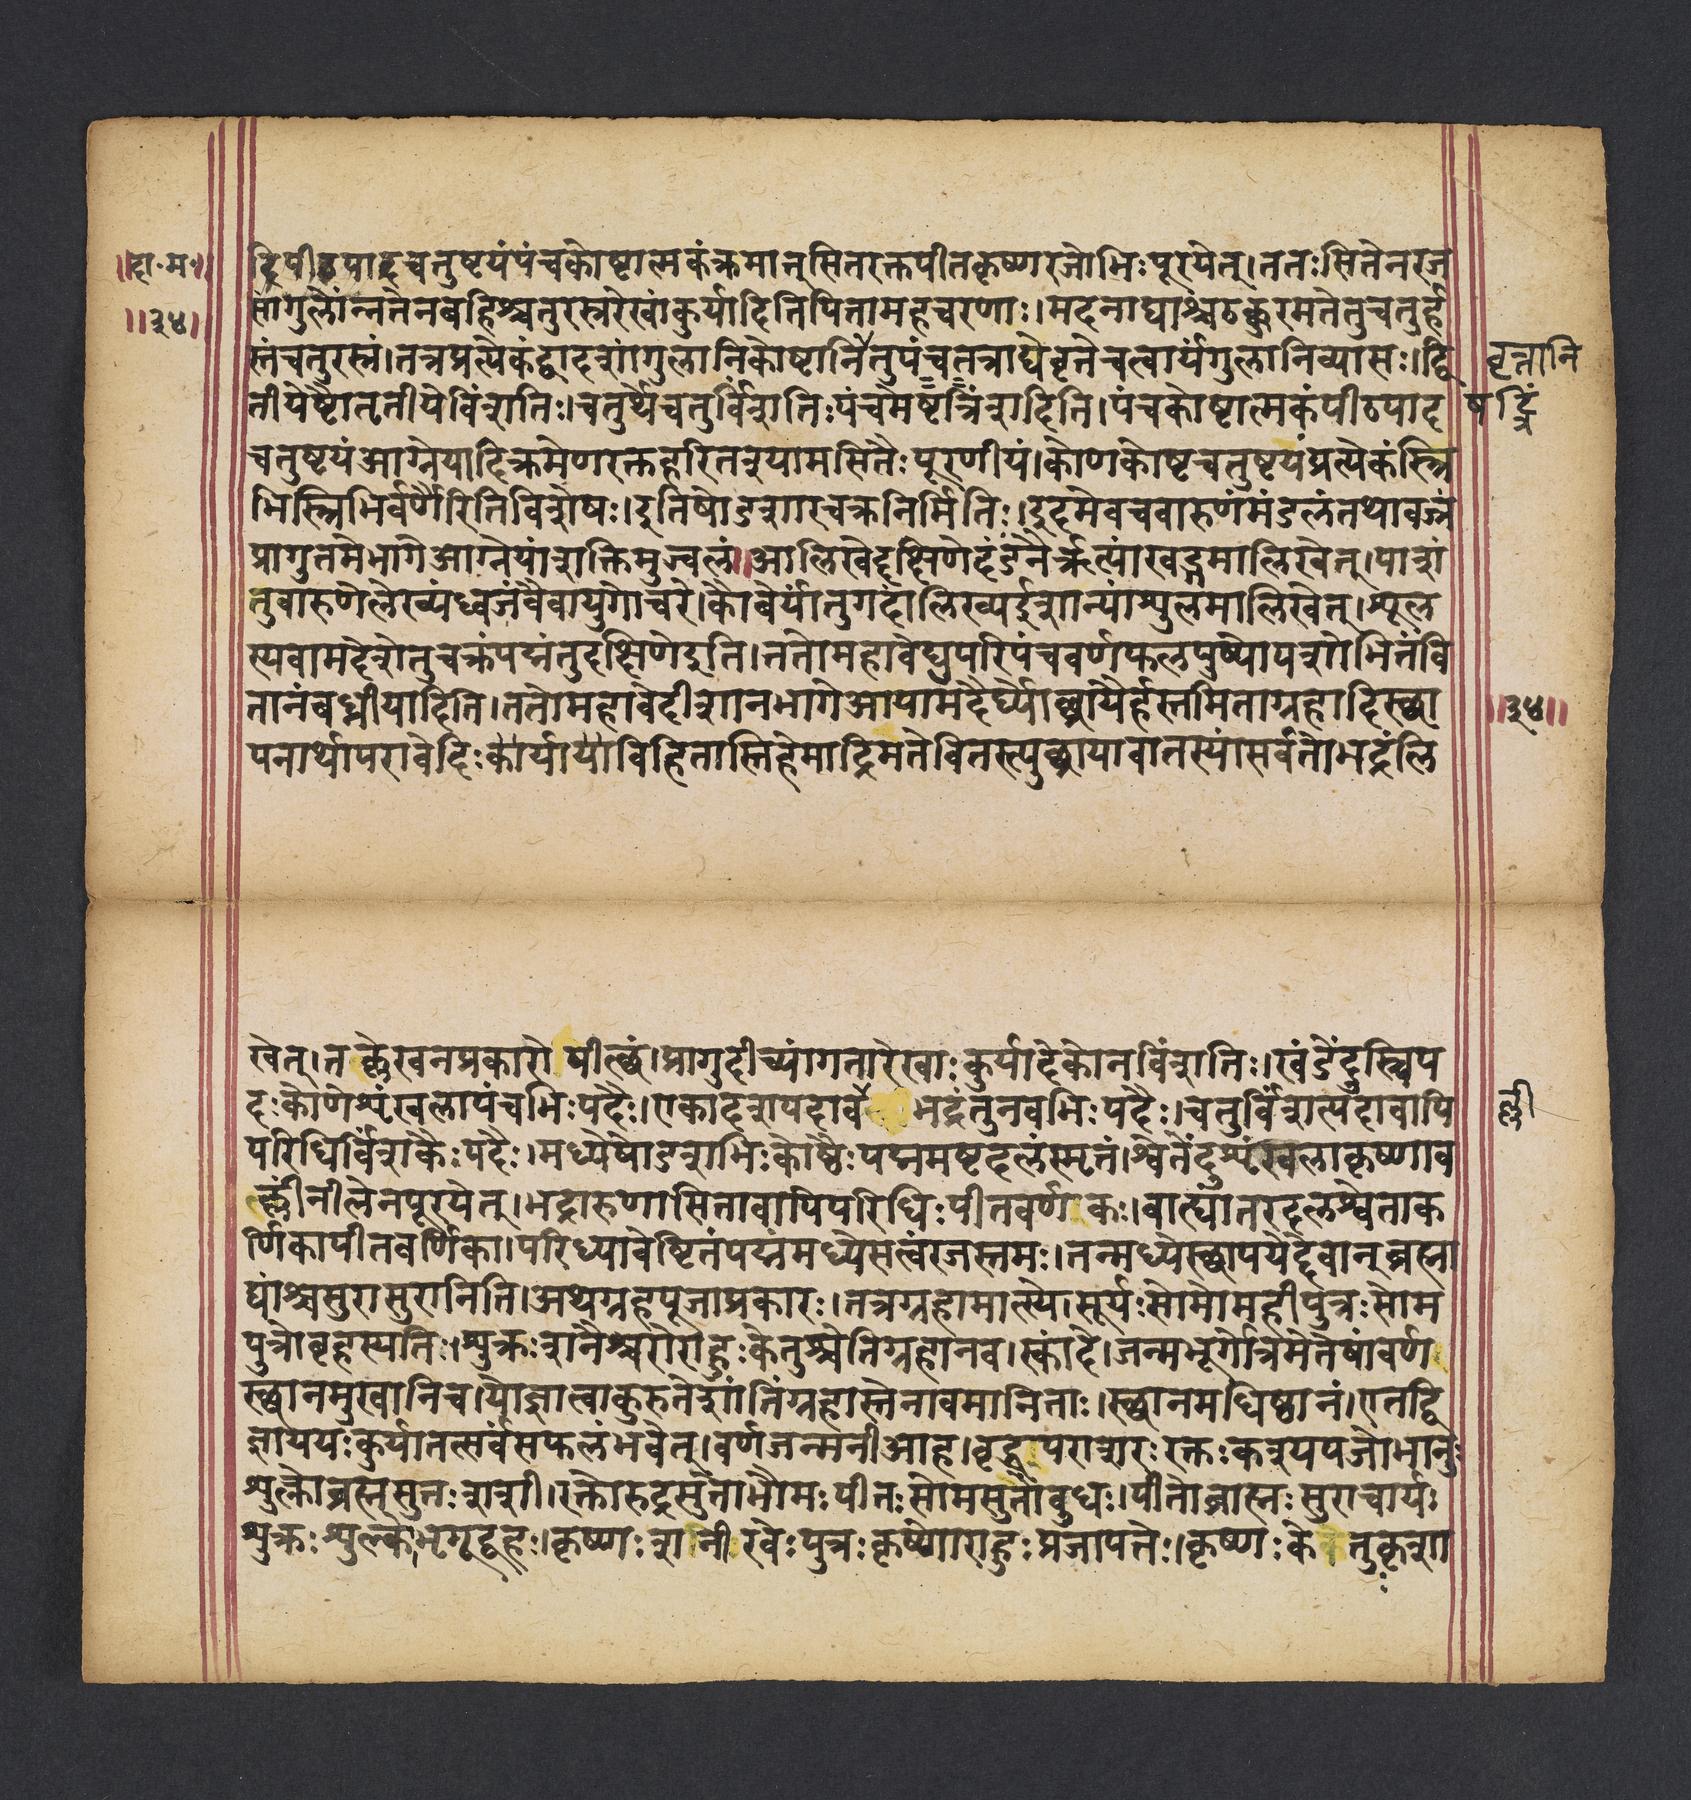 ॥दा॰म॰॥
॥३४॥
द्विपीठपादचतुष्टयंपंचकोष्टात्मकंक्रमात्सितरक्तपीतकृष्णरजोभिःपूरयेत्।ततःसितेनरज
सांगुलोन्नतेनबहिश्चतुरस्त्ररेखांकुर्यादितिपितामहचरणाः।मदनाद्याश्चठक्कुरमतेतुचतुर्ह
स्तंचतुरस्त्रं।तत्रप्रत्येकंद्वादशांगुलानिकोष्टानितुपंचतत्राद्येवृत्तेचत्वार्यंगुलानिव्यासः।द्वि
वृत्तानि
तीयेष्टौतृतीयेविंशतिः।चतुर्थेचतुर्विंशतिःपंचमेष्टत्रिंशदिति।पंचकोष्टात्मकंपीठपाद
षट्त्रिं
चतुष्टयंआग्नेयादिक्रमेणरक्तहरितश्यामसितैःपूरणीयं।कोणकोष्टचतुष्टयंप्रत्येकंस्त्रि
भिस्त्रिभिर्वर्णैरितिविशेषः।इतिषोडशारचक्रनिर्मितिः।इदमेवचवारुणंमंडलंतथावज्रं
प्रागुत्तमेभागेआग्नेयांशक्तिमुज्वलं॥आलिखेद्दक्षिणेदंडंनैर्ऋत्यांखड्गमालिखेत्।पाशं
तुवारुणेलेख्यंध्वजंवैवायुगोचरे।कौबेर्यांतुगदांलिख्यईशान्यांशूलमालिखेत्।शूल
स्यवामदेशेतुचक्रंपद्मंतुदक्षिणेइति।ततोमहावेद्युपरिपंचवर्णफलपुष्योपशोभितंवि
तानंबध्नीयादिति।ततोमहावेदीशानभागेआयामदैर्घ्योछ्रायैर्हस्तमिताग्रहादिस्छा
॥३४॥
पनार्थापरावेदिःकार्यायाविहितास्तिहेमाद्रिमतेवितस्त्युछ्रायावातस्यांसर्वतोभद्रंलि
खेत्।तल्लेखनप्रकारोपीत्छं।प्रागुदीच्यांगतारेखाःकुर्यादेकोनविंशतिः।खंडेंदुस्त्रिप
दःकोणेशृंखलापंचभिःपदैः।एकादशपदावभद्रंतुनवभिःपदैः।चतुर्विंशत्पदावापि
ल्ली
परिधिर्विंशकैःपदैः।मध्येषोडशभिःकोष्ठैःपद्ममष्टदलंस्मृतं।श्वेतेंदुशृंखलाकृष्णाव
ल्लींनीलेनपूरयेत्।भद्रारुणासितावापिपरिधिःपीतवर्णकः।बात्द्यांतरदलश्वेताक
र्णिकापीतवर्णिका।परिध्यावेष्टितंपद्मंमध्येसत्वंरजस्तमः।तन्मध्येस्छापयेद्देवान्ब्रह्मा
द्यांश्चसुरासुरानिति।अथग्रहपूजाप्रकारः।तत्रग्रहामात्स्ये।सूर्यःसोमोमहीपुत्रःसोम
पुत्रोबृहस्पतिः।शुक्रःशनैश्चरोराहुःकेतुश्चेतिग्रहानव।स्कांदे।जन्मभूर्गोत्रमेतेषांवर्ण
स्छानमुखानिच।योज्ञात्वाकुरुतेशांतिंग्रहास्तेनावमानिताः।स्छानमधिष्ठानं।एतद्वि
ज्ञाययःकुर्यातत्सर्वंसफलंभवेत्।वर्णजन्मनीआह।वृद्धपराशरःरक्तःकश्यपजोभानुः
शुल्कोब्रह्मसुतःशशी।रक्तोरुद्रसुतोभौमःपीतःसोमसुतोबुधः।पीतोब्राह्मःसुराचार्यः
शुक्रःशुल्कोभृगूद्वहः।कृष्णःशनीरवेःपुत्रःकृष्णोराहुःप्रजापतेः।कृष्णःकेतुकृशा